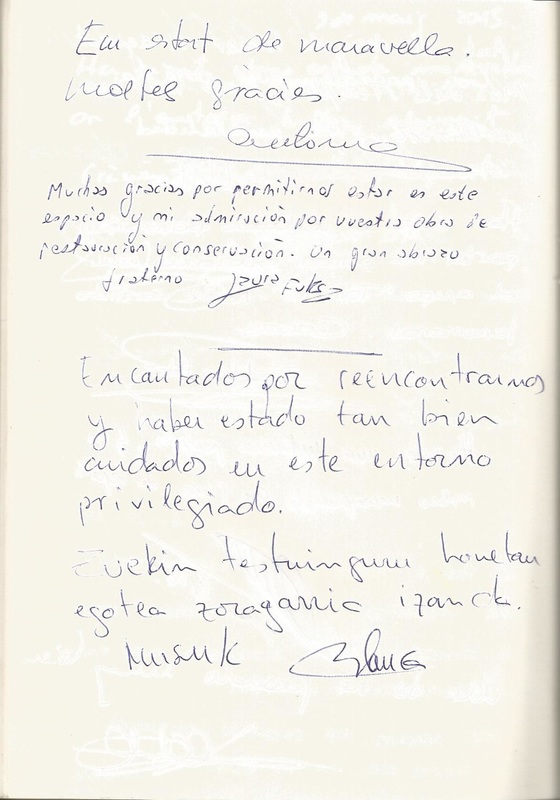 Em estat de maravella.
moltes gràcies.
Antònia
Muchas gracias por permitirnos estar en este
espacio y mi admiración por vuestra obra de
restauración y conservación. Un gran abrazo
fraterno Laura Fuksa
Encantados por reencontrarnos
y haber estado tan bien
cuidados en este entorno
privilegiado.
Zuekin testuinguru honetan
egotea zoragarria izan da.
Musuk Blanca